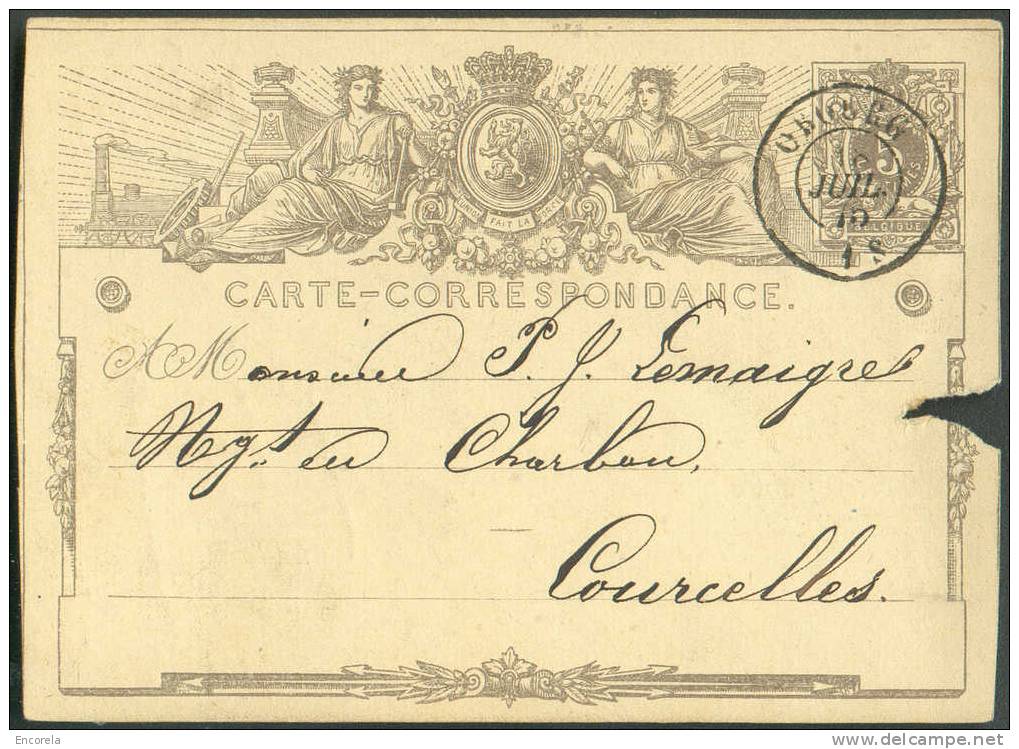 L'UNION FAIT LA FORCE
5
BELGIQUE
OBOURG
JUIL.
1 S
CARTE-CORRESPONDANCE.
A Monsieur P. J. Lemaigre
Ngt. en Charbon,
Courcelles.
Encorela
www.delcampe.net